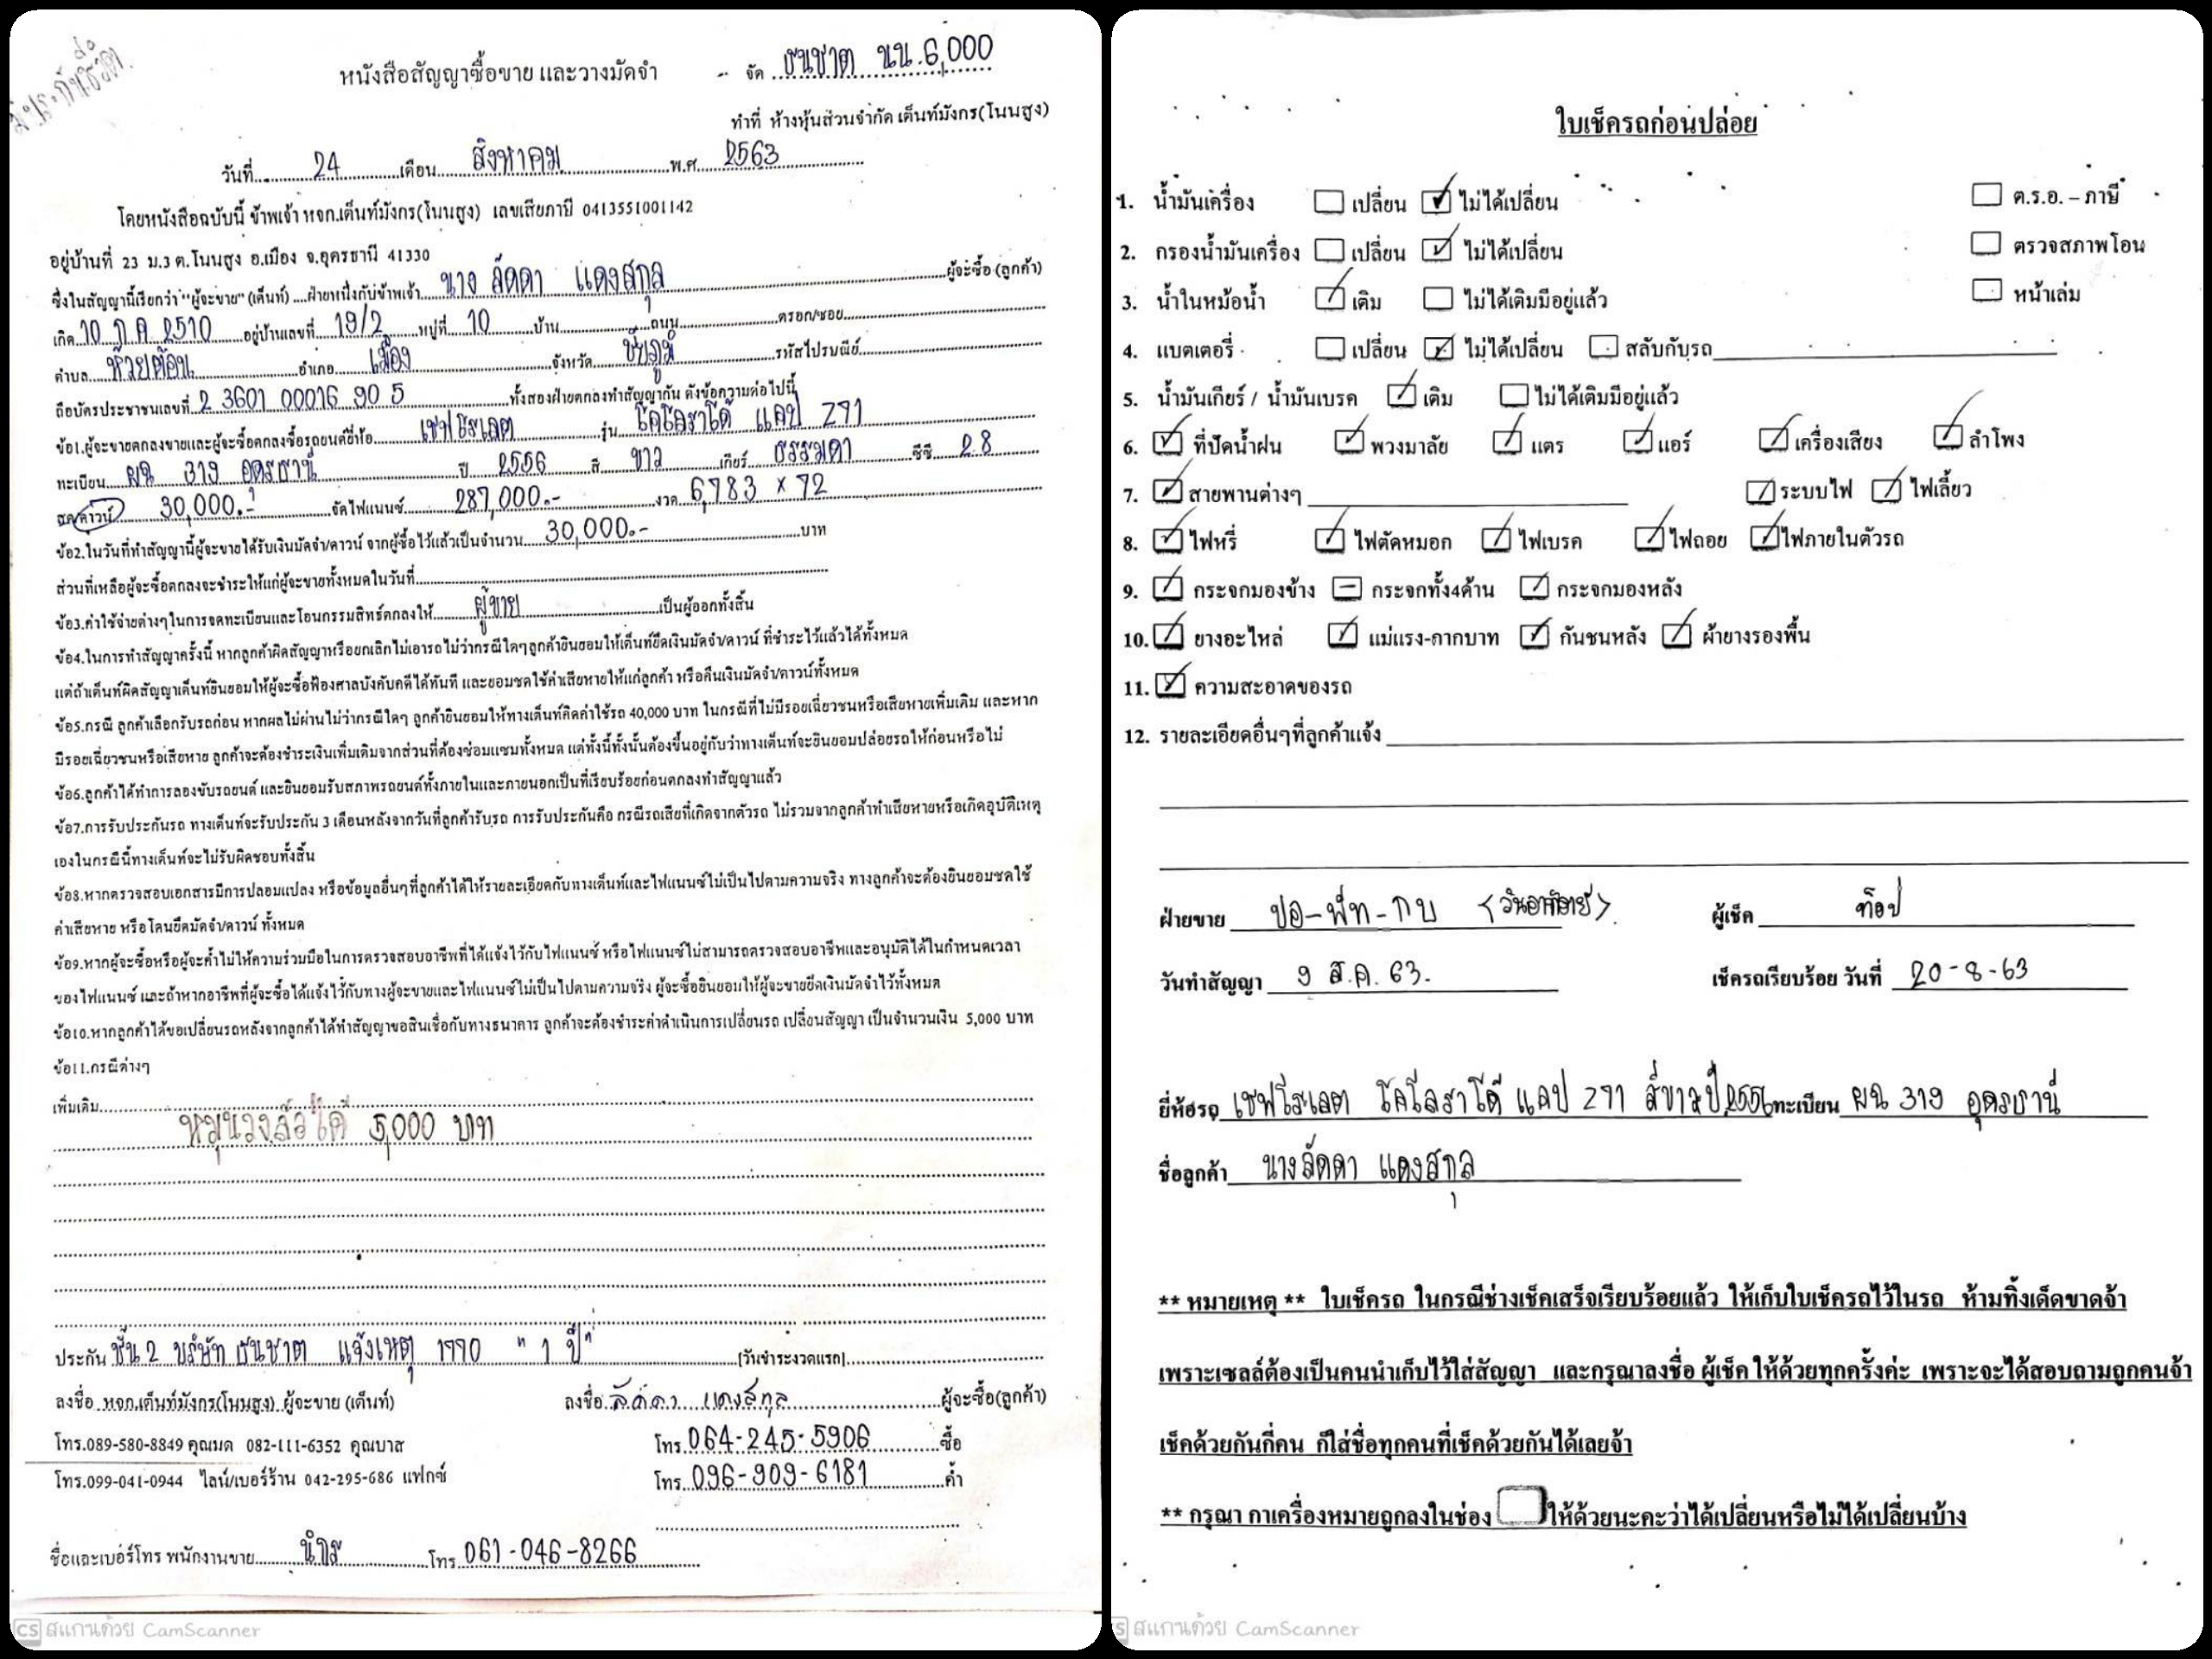 มีประกันชีวิต
หนังสือสัญญาซื้อขาย และวางมัดจำ
จัด ธนชาต นน.6,000
ทำที่ ห้างหุ้นส่วนจำกัด เต็นท์มังกร(โนนสูง)
วันที่ 24 เดือน สิงหาคม พ.ศ. 2563
โดยหนังสือฉบับนี้ ข้าพเจ้า หจก.เต็นท์มังกร(โนนสูง) เลขเสียภาษี 0413551001142
อยู่บ้านที่ 23 ม.3 ต.โนนสูง อ.เมือง จ.อุดรธานี 41330
ซึ่งในสัญญานี้เรียกว่า"ผู้จะขาย"(เต็นท์) ....ฝ่ายหนึ่งกับข้าพเจ้า นาง ลัดดา แดงสกุล ผู้จะซื้อ (ลูกค้า)
เกิด 10 ก.ค 2510 อยู่บ้านเลขที่ 19/2 หมู่ที่ 10 บ้าน ถนน ตรอก/ซอย
ตำบล ห้วยต้อน อำเภอ เมือง จังหวัด ชัยภูมิ รหัสไปรษณีย์
ถือบัตรประชาชนเลขที่ 2 3601 00016 90 5 ทั้งสองฝ่ายตกลงทำสัญญากัน ดังข้อความต่อไปนี้
ข้อ1.ผู้จะขายตกลงขายและผู้จะซื้อตกลงซื้อรถยนต์ยี่ห้อ เชฟโรเลต รุ่น โคโลราโด้ แคป Z71
ทะเบียน ผฉ 319 อุดรธานี ปี 2556 สี ขาว เกียร์ ธรรมดา ซีซี 2.8
สด/ดาวน์ 30,000.- จัดไฟแนนซ์ 287,000.- งวด 6,783 × 72
ข้อ2.ในวันที่ทำสัญญานี้ผู้จะขายได้รับเงินมัดจำ/ดาวน์ จากผู้ซื้อไว้แล้วเป็นจำนวน 30,000.- บาท
ส่วนที่เหลือผู้จะซื้อตกลงจะชำระให้แก่ผู้จะขายทั้งหมดในวันที่
ข้อ3.ค่าใช้จ่ายต่างๆในการจดทะเบียนและโอนกรรมสิทธ์ตกลงให้ ผู้ขาย เป็นผู้ออกทั้งสิ้น
ข้อ4.ในการทำสัญญาครั้งนี้ หากลูกค้าผิดสัญญาหรือยกเลิกไม่เอารถ ไม่ว่ากรณีใดๆลูกค้ายินยอมให้เต็นท์ยึดเงินมัดจำ/ดาวน์ ที่ชำระไว้แล้วได้ทั้งหมด
แต่ถ้าเต็นท์ผิดสัญญาเต็นท์ยินยอมให้ผู้จะซื้อฟ้องศาลบังคับคดีได้ทันที และยอมชดใช้ค่าเสียหายให้แก่ลูกค้า หรือคืนเงินมัดจำ/ดาวน์ทั้งหมด
ข้อ5.กรณี ลูกค้าเลือกรับรถก่อน หากผลไม่ผ่านไม่ว่ากรณีใดๆ ลูกค้ายินยอมให้ทางเต็นท์คิดค่าใช้รถ 40,000 บาท ในกรณีที่ไม่มีรอยเฉี่ยวชนหรือเสียหายเพิ่มเติม และหาก
มีรอยเฉี่ยวชนหรือเสียหาย ลูกค้าจะต้องชำระเงินเพิ่มเติมจากส่วนที่ต้องซ่อมแซมทั้งหมด แต่ทั้งนี้ทั้งนั้นต้องขึ้นอยู่กับว่าทางเต็นท์จะยินยอมปล่อยรถให้ก่อนหรือไม่
ข้อ6.ลูกค้าได้ทำการลองขับรถยนต์ และยินยอมรับสภาพรถยนต์ทั้งภายในและภายนอกเป็นที่เรียบร้อยก่อนตกลงทำสัญญาแล้ว
ข้อ7.การรับประกันรถ ทางเต็นท์จะรับประกัน 3 เดือนหลังจากวันที่ลูกค้ารับรถ การรับประกันคือ กรณีรถเสียที่เกิดจากตัวรถ ไม่รวมจากลูกค้าทำเสียหายหรือเกิดอุบัติเหตุ
เองในกรณีนี้ทางเต็นท์จะไม่รับผิดชอบทั้งสิ้น
ข้อ8.หากตรวจสอบเอกสารมีการปลอมแปลง หรือข้อมูลอื่นๆที่ลูกค้าได้ให้รายละเอียดกับทางเต็นท์และไฟแนนซ์ไม่เป็นไปตามความจริง ทางลูกค้าจะต้องยินยอมชดใช้
ค่าเสียหาย หรือ โดนยึดมัดจำ/ดาวน์ ทั้งหมด
ข้อ9.หากผู้จะซื้อหรือผู้จะค้ำไม่ให้ความร่วมมือในการตรวจสอบอาชีพที่ได้แจ้งไว้กับไฟแนนซ์ หรือไฟแนนซ์ไม่สามารถตรวจสอบอาชีพและอนุมัติได้ในกำหนดเวลา
ของไฟแนนซ์ และถ้าหากอาชีพที่ผู้จะซื้อได้แจ้งไว้กับทางผู้จะขายและไฟแนนซ์ไม่เป็นไปตามความจริง ผู้จะซื้อยินยอมให้ผู้จะขายยึดเงินมัดจำไว้ทั้งหมด
ข้อ10.หากลูกค้าได้ขอเปลี่ยนรถหลังจากลูกค้าได้ทำสัญญาขอสินเชื่อกับทางธนาคาร ลูกค้าจะต้องชำระค่าดำเนินการเปลี่ยนรถ เปลี่ยนสัญญา เป็นจำนวนเงิน 5,000 บาท
ข้อ11.กรณีต่างๆ
เพิ่มเติม
หมุนวงล้อได้ 5,000 บาท
ประกัน ชั้น 2 บริษัท ธนชาต แจ้งเหตุ 1770 "1 ปี" [วันชำระงวดแรก]
ลงชื่อ หจก.เต็นท์มังกร(โนนสูง) ผู้จะขาย (เต็นท์) ลงชื่อ ลัดดา แดงสกุล ผู้จะซื้อ(ลูกค้า)
โทร.089-580-8849 คุณมด 082-111-6352 คุณบาส โทร. 064-245-5906 ซื้อ
โทร.099-041-0944 ไลน์/เบอร์ร้าน 042-295-686 แฟกซ์ โทร. 096-909-6181 ค้ำ
ชื่อและเบอร์โทร พนักงานขาย โทร 061-046-8266
CS สแกนด้วย CamScanner
ใบเช็ครถก่อนปล่อย
1. น้ำมันเครื่อง เปลี่ยน ไม่ได้เปลี่ยน ต.ร.อ. – ภาษี
2. กรองน้ำมันเครื่อง เปลี่ยน ไม่ได้เปลี่ยน ตรวจสภาพโอน
3. น้ำในหม้อน้ำ เติม ไม่ได้เติมมีอยู่แล้ว หน้าเล่ม
4. แบตเตอรี่ เปลี่ยน ไม่ได้เปลี่ยน สลับกับรถ
5. น้ำมันเกียร์ / น้ำมันเบรค เติม ไม่ได้เติมมีอยู่แล้ว
6. ที่ปัดน้ำฝน พวงมาลัย แตร แอร์ เครื่องเสียง ลำโพง
7. สายพานต่างๆ ระบบไฟ ไฟเลี้ยว
8. ไฟหรี่ ไฟตัดหมอก ไฟเบรค ไฟถอย ไฟภายในตัวรถ
9. กระจกมองข้าง กระจกทั้ง4ด้าน กระจกมองหลัง
10. ยางอะไหล่ แม่แรง-กากบาท กันชนหลัง ผ้ายางรองพื้น
11. ความสะอาดของรถ
12. รายละเอียดอื่นๆที่ลูกค้าแจ้ง
ฝ่ายขาย ปอ-พัท-กบ ผู้เช็ค ท็อป
วันทำสัญญา 9 ส.ค. 63. เช็ครถเรียบร้อย วันที่ 20-8-63
ยี่ห้อรถ เชฟโรเลต โคโลราโด้ แคป Z71 สีขาว ปี 2556 ทะเบียน ผฉ 319 อุดรธานี
ชื่อลูกค้า นางลัดดา แดงสกุล
** หมายเหตุ ** ใบเช็ครถ ในกรณีช่างเช็คเสร็จเรียบร้อยแล้ว ให้เก็บใบเช็ครถไว้ในรถ ห้ามทิ้งเด็ดขาดจ้า
เพราะเซลล์ต้องเป็นคนนำเก็บไว้ใส่สัญญา และกรุณาลงชื่อ ผู้เช็ค ให้ด้วยทุกครั้งค่ะ เพราะจะได้สอบถามถูกคนจ้า
เช็คด้วยกันกี่คน ก็ใส่ชื่อทุกคนที่เช็คด้วยกันได้เลยจ้า
** กรุณา กาเครื่องหมายถูกลงในช่อง ให้ด้วยนะคะว่าได้เปลี่ยนหรือไม่ได้เปลี่ยนบ้าง
CS สแกนด้วย CamScanner